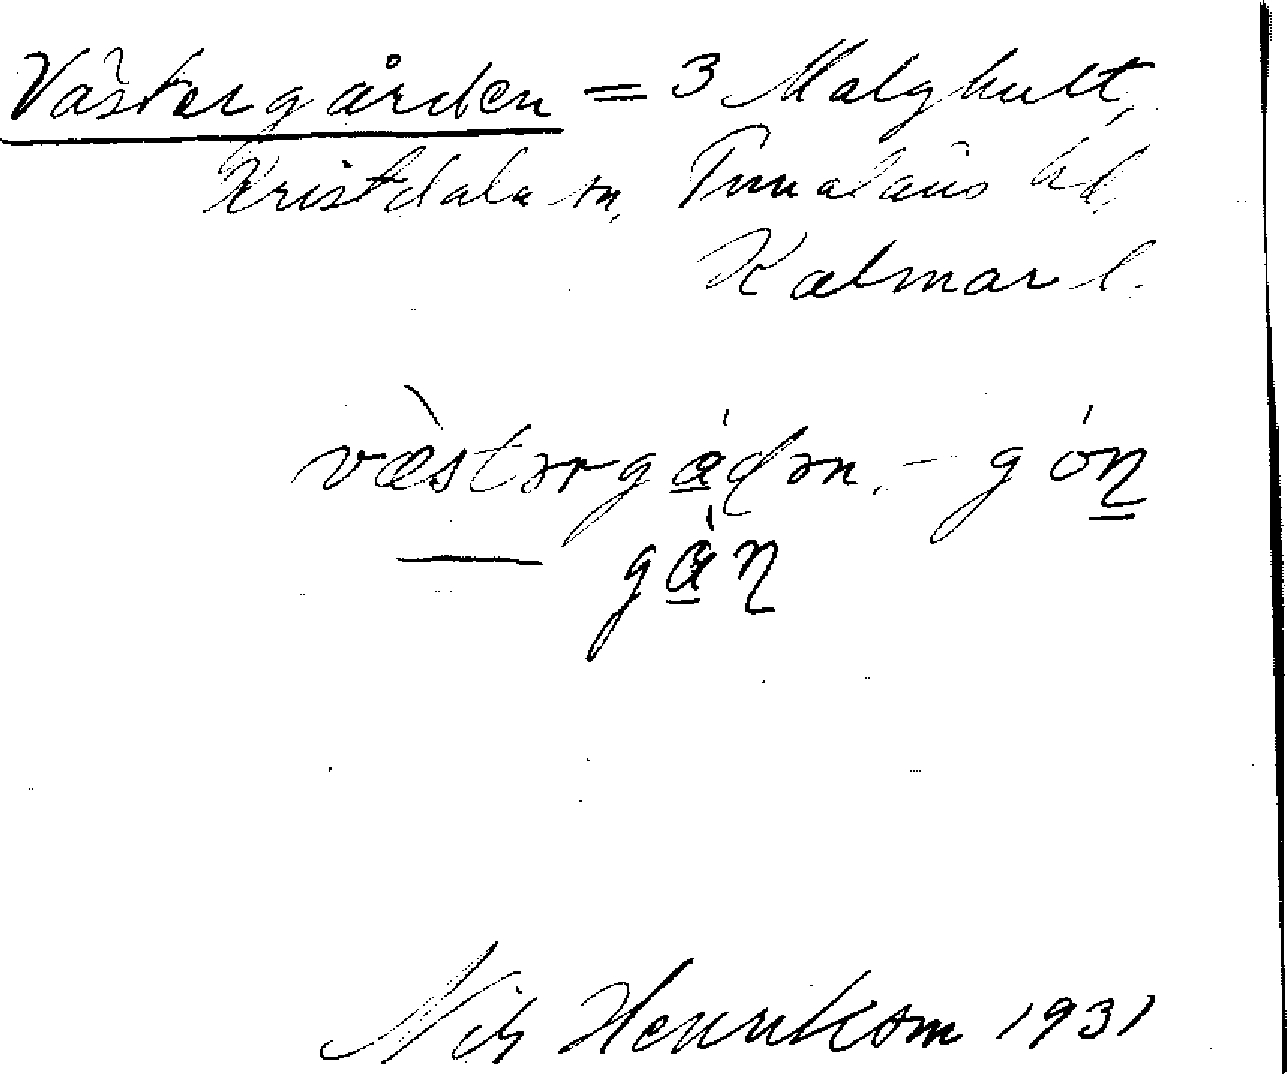 Västergården = 3 Malghult,
Kristdala sn, Tunaläns hd,
Kalmar l.
væstərgådən, - gón
— gån
Nils Henriksson 1931